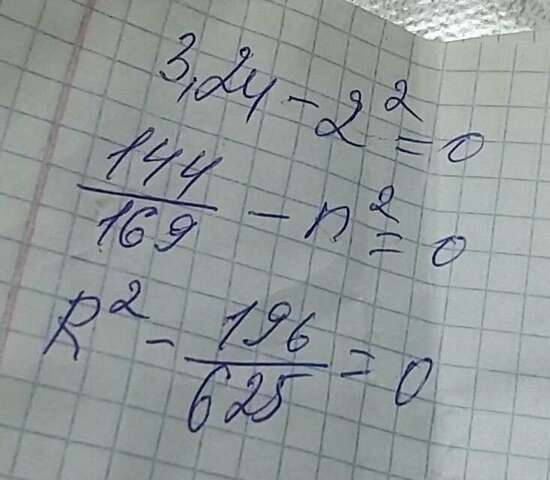 3,24 - 2² = 0
144/169 - n² = 0
R² - 196/625 = 0